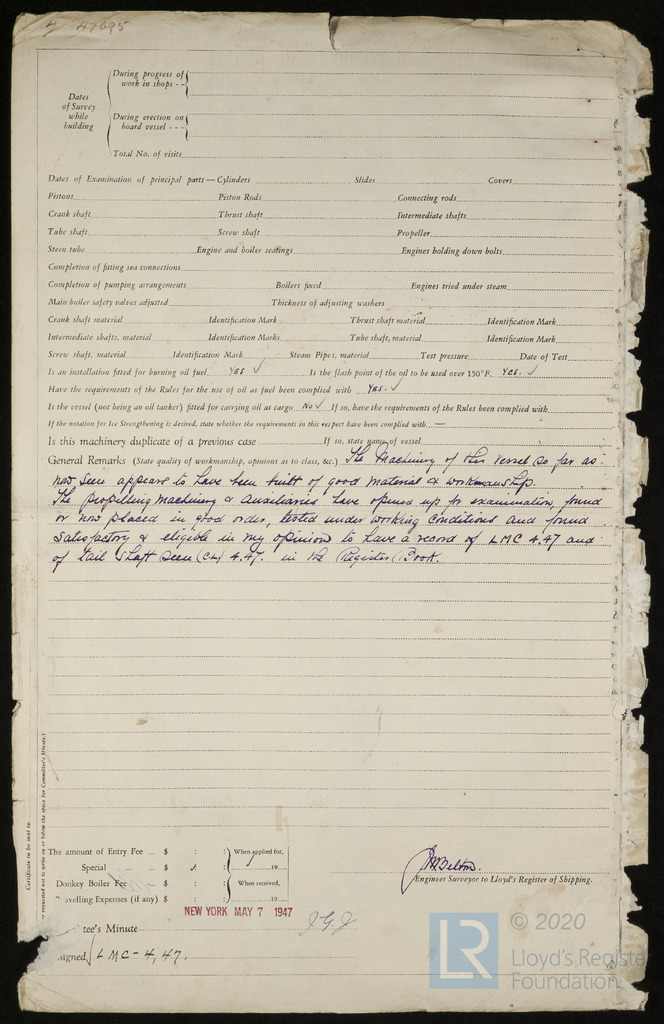 47695
During progress of
work in shops - -
Dates
of Survey
while
building
During erection on
board vessel - - -
Total No. of visits
Dates of Examination of principal parts—Cylinders Slides Covers
Pistons Piston Rods Connecting rods
Crank shaft Thrust shaft Intermediate shafts
Tube shaft Screw shaft Propeller
Stern tube Engine and boiler seatings Engines holding down bolts
Completion of fitting sea connections
Completion of pumping arrangements Boilers fixed Engines tried under steam
Main boiler safety valves adjusted Thickness of adjusting washers
Crank shaft material Identification Mark Thrust shaft material Identification Mark
Intermediate shafts, material Identification Marks Tube shaft, material Identification Mark
Screw shaft, material Identification Mark Steam Pipes, material Test pressure Date of Test
Is an installation fitted for burning oil fuel Yes ✓ Is the flash point of the oil to be used over 150°F. Yes. ✓
Have the requirements of the Rules for the use of oil as fuel been complied with Yes. ✓
Is the vessel (not being an oil tanker) fitted for carrying oil as cargo No ✓ If so, have the requirements of the Rules been complied with
If the notation for Ice Strengthening is desired, state whether the requirements in this respect have been complied with —
Is this machinery duplicate of a previous case If so, state name of vessel
General Remarks (State quality of workmanship, opinions as to class, &c.) The Machinery of this vessel so far as
now seen appears to have been built of good material & workmanship.
The propelling machinery & auxiliaries have opened up for examination, found
or now placed in good order, tested under working conditions and found
satisfactory & eligible in my opinion to have a record of LMC 4.47 and
of tail shaft seen (CL) 4.47. in the Register Book.
Certificate to be sent to
requested not to write on or below the space for Committee's Minute.)
The amount of Entry Fee ... $ : : When applied for,
Special ... $ : : 19
Donkey Boiler Fee ... $ : : When received,
avelling Expenses (if any) $ : : 19
Engineer Surveyor to Lloyd's Register of Shipping.
NEW YORK MAY 7 1947
tee's Minute
signed LMC - 4,47.
LR
© 2020
Lloyd's Register
Foundation